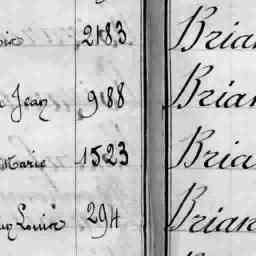 2183 Brian
Jean 988 Brian
Marie 1523 Bria
Louise 294 Brian